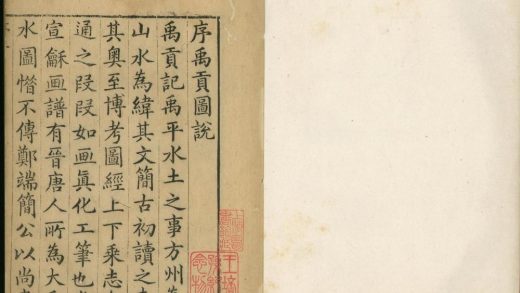 序禹貢圖說
禹貢記禹平水土之事方州為
山水為緯其文簡古初讀之
其奥至博考圖經上下乘志
通之段段如画眞化工筆也
宣龢画譜有晉唐人所為大
水圖惜不傳鄭端簡公以尚
王培孫紀念物